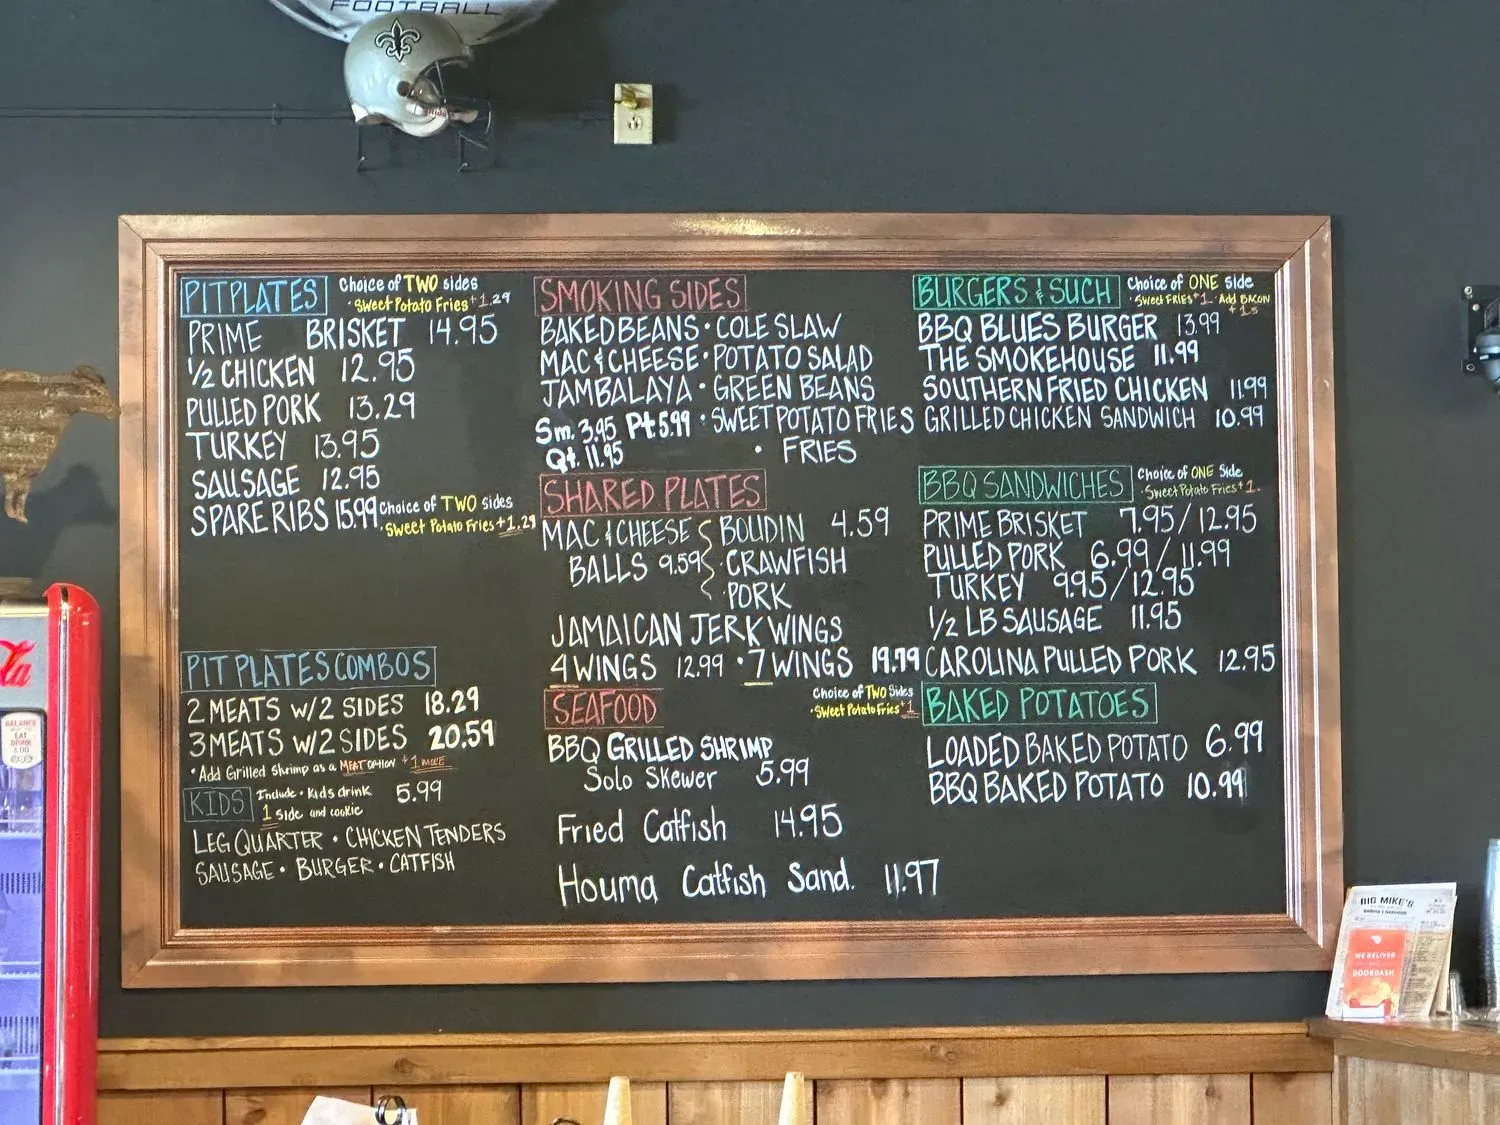 FOOTBALL
PIT PLATES Choice of TWO sides
· Sweet Potato Fries +1.29
PRIME BRISKET 14.95
1/2 CHICKEN 12.95
PULLED PORK 13.29
TURKEY 13.95
SAUSAGE 12.95
SPARE RIBS 15.99 Choice of TWO sides
· Sweet Potato Fries +1.29
PIT PLATES COMBOS
2 MEATS W/2 SIDES 18.29
3 MEATS W/2 SIDES 20.59
· Add Grilled Shrimp as a MEAT OPTION +1 MORE
KIDS Include · Kids drink 5.99
1 Side and cookie
LEG QUARTER · CHICKEN TENDERS
SAUSAGE · BURGER · CATFISH
SMOKING SIDES
BAKED BEANS · COLE SLAW
MAC & CHEESE · POTATO SALAD
JAMBALAYA · GREEN BEANS
Sm. 3.95 Pt. 5.99 · SWEET POTATO FRIES
Qt. 11.95 · FRIES
SHARED PLATES
MAC & CHEESE BOUDIN 4.59
BALLS 9.59 · CRAWFISH
· PORK
JAMAICAN JERK WINGS
4 WINGS 12.99 · 7 WINGS 19.79
SEAFOOD Choice of TWO Sides
· Sweet Potato Fries +1
BBQ GRILLED SHRIMP
Solo Skewer 5.99
Fried Catfish 14.95
Houma Catfish Sand. 11.97
BURGERS & SUCH Choice of ONE side
· Sweet FRIES +1 · Add BACON
BBQ BLUES BURGER 13.99
THE SMOKEHOUSE 11.99
SOUTHERN FRIED CHICKEN 11.99
GRILLED CHICKEN SANDWICH 10.99
BBQ SANDWICHES Choice of ONE Side
· Sweet Potato Fries +1.
PRIME BRISKET 7.95/12.95
PULLED PORK 6.99/11.99
TURKEY 9.95/12.95
1/2 LB SAUSAGE 11.95
CAROLINA PULLED PORK 12.95
BAKED POTATOES
LOADED BAKED POTATO 6.99
BBQ BAKED POTATO 10.99
BALANCE
EAT
DRINK
& DO
BIG MIKE'S
WE DELIVER
DOORDASH